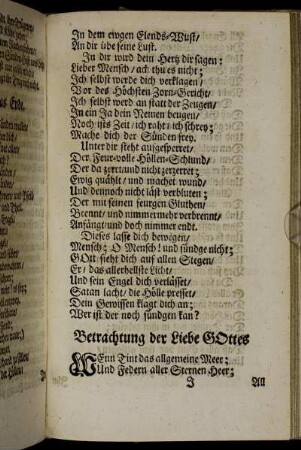 In dem ewgen Elends-Wust/
An dir übe seine Lust.
In dir wird dein Hertz dir sagen:
Lieber Mensch/ ach thu es nicht;
Ich selbst werde dich verklagen/
Vor des Höchsten Zorn-Gericht/
Ich selbst werd an statt der Zeugen/
In ein Ja dein Neinen beugen/
Noch ists Zeit/ ich raht/ ich schrey;
Mache dich der Sünden frey.
Unter dir steht aufgesperret/
Der Feur-volle Höllen-Schlund/
Der da zerrt und nicht zerzerret;
Ewig quählt/ und machet wund/
Und dennoch nicht läst verbluten;
Der mit seinen feurgen Gluthen/
Brennt/ und nimmermehr verbrennt/
Anfängt/ und doch nimmer endt.
Dieses lasse dich bewegen/
Mensch; O Mensch! und sündge nicht;
GOtt sieht dich auf allen Stegen/
Er/ das allerhellste Licht/
Und sein Engel dich verlässet/
Satan lacht/ die Hölle presset/
Dein Gewissen klagt dich an;
Wer ist der noch sündgen kan?
Betrachtung der Liebe GOttes
WEnn Tint das allgemeine Meer;
Und Federn aller Sternen Heer;
J
All